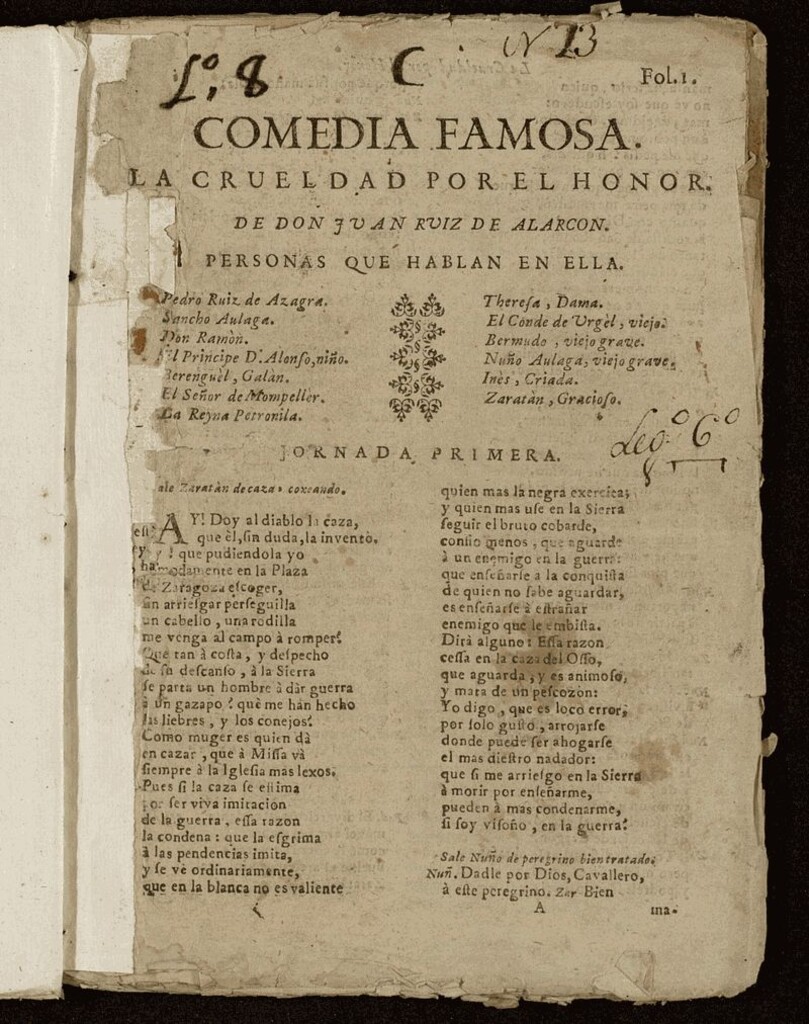 Lo. 8 C N 13
Fol. 1.
COMEDIA FAMOSA.
LA CRUELDAD POR EL HONOR.
DE DON JUAN RUIZ DE ALARCON.
PERSONAS QUE HABLAN EN ELLA.
Pedro Ruiz de Azagra.
Sancho Aulaga.
Don Ramòn.
El Principe D. Alonſo, niño.
Berenguèl, Galàn.
El Señor de Mompeller.
La Reyna Petronila.
Thereſa, Dama.
El Conde de Urgèl, viejo.
Bermudo, viejo grave.
Nuño Aulaga, viejo grave.
Inès, Criada.
Zaratàn, Gracioſo.
Lego 6o
JORNADA PRIMERA.
ale Zaratàn de caza, coxeando.
AY! Doy al diablo la caza,
que èl, ſin duda, la inventò.
y ! que pudiendola yo
modamente en la Plaza
de Zaragoza eſcoger,
ſin arrieſgar perſeguilla
un cabello, una rodilla
me venga al campo à romper!
Que tan à coſta, y deſpecho
de ſu deſcanſo, à la Sierra
ſe parta un hombre à dàr guerra
à un gazapo! què me hàn hecho
las liebres, y los conejos!
Como muger es quien dà
en cazar, que à Miſſa và
ſiempre à la Igleſia mas lexos.
Pues ſi la caza ſe eſtima
por ſer viva imitacion
de la guerra, eſſa razon
la condena: que la eſgrima
à las pendencias imita,
y ſe vè ordinariamente,
que en la blanca no es valiente
quien mas la negra exercita;
y quien mas uſe en la Sierra
ſeguir el bruto cobarde,
conſio menos, que aguarde
à un enemigo en la guerra:
que enſeñarſe a la conquiſta
de quien no ſabe aguardar,
es enſeñarſe à eſtrañar
enemigo que le embiſta.
Dirà alguno: Eſſa razon
ceſſa en la caza del Oſſo,
que aguarda, y es animoſo,
y mata de un peſcozòn:
Yo digo, que es loco error,
por ſolo guſto, arrojarſe
donde puede ſer ahogarſe
el mas dieſtro nadador:
que ſi me arrieſgo en la Sierra
à morir por enſeñarme,
pueden à mas condenarme,
ſi ſoy viſoño, en la guerra?
Sale Nuño de peregrino bien tratado.
Nuñ. Dadle por Dios, Cavallero,
à eſte peregrino. Zar Bien
A
ma-